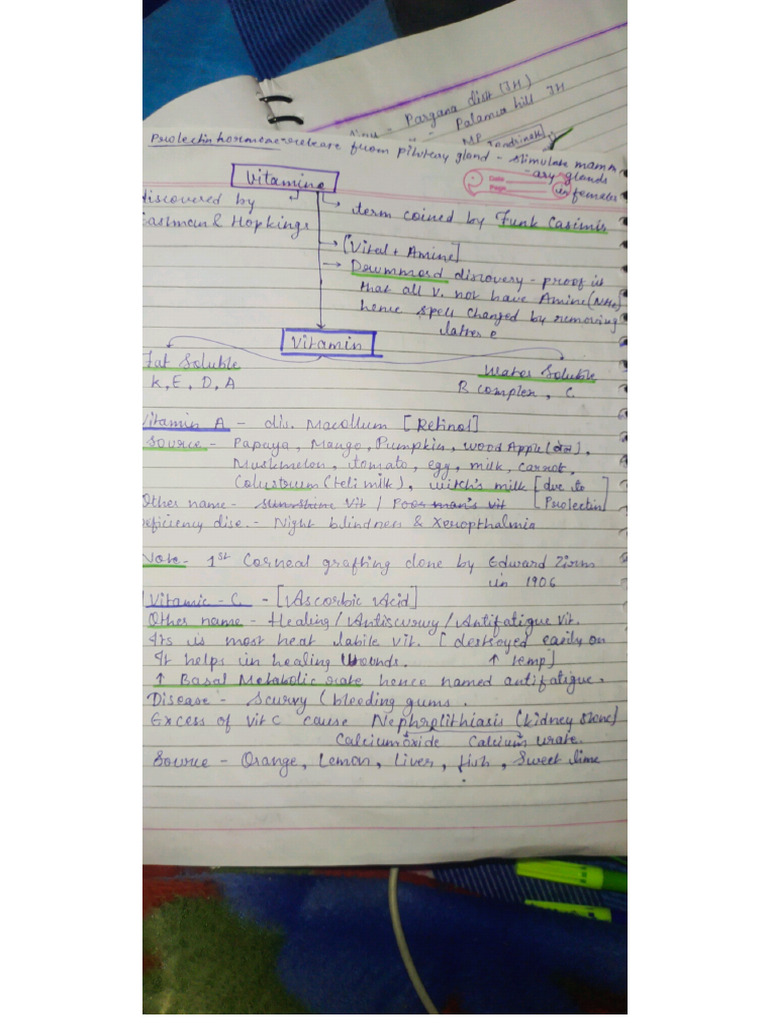 Pargana distt (JH)
Palamu hill JH
MP
Prolectin hormone release from pitutery gland - stimulate mamm
-ary glands
in females
Date
Page
Vitamine
discovered by
Eastman & Hopkings
term coined by Funk Casimir
[Vital + Amine]
Drummord discovery - proof it
that all V. not have Amine (NH2)
hence spell changed by removing
latter e
Vitamin
Fat Soluble
K, E, D, A
Water Soluble
B complex, C
Vitamin A - dis. Macollum [Retinol]
Source - Papaya, Mango, Pumpkin, wood Apple (बेल),
Muskmelon, tomato, egg, milk, carrot,
Colustrum (teli milk), witch's milk [due to
Prolectin]
Other name - sunshine Vit / Poor man's vit
Deficiency dise. - Night blindness & Xeropthalmia
Note - 1st Corneal grafting done by Edward Zirm
in 1906
Vitamic - C - [Ascorbic Acid]
Other name - Healing / Antiscurvy / Antifatigue Vit.
Its is most heat labile vit. [destroyed easily on
↑ temp]
It helps in healing wounds.
↑ Basal Metabolic rate hence named antifatigue.
Disease - Scurvy (bleeding gums.
Excess of Vit C cause Nephrolithiasis (kidney stone)
Calcium oxide Calcium urate.
Source - Orange, Lemon, Liver, fish, Sweet lime